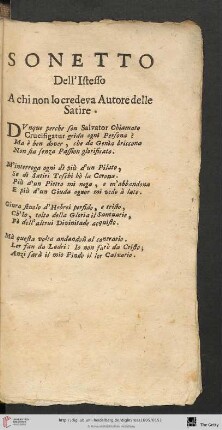 SONETTO
Dell'Istesso
A chi non lo credeva Autore delle
Satire.
DVnque perche son Salvator Chiamato
Crucifigatur grida ogni Persona?
Ma è ben dover, che da Gente briccona
Non sia senza Passion glorificato.
M'interroga ogni dì più d'un Pilato,
Se di Satiri Toschi hò la Corona.
Più d'un Pietro mi nega, e m'abbandona
E più d'un Giuda ogner mi vedo à lato.
Giura stuolo d'Hebrei perfido, e tristo,
Ch'Io, tolto della Gloria il Santuario,
Fà dell'altrui Divinitade acquisto.
Mà questa volta andandoli al contrario.
Lor fan da Ladri: Io non farò da Cristo;
Anzi sarà il mio Pindo il lor Calvario.